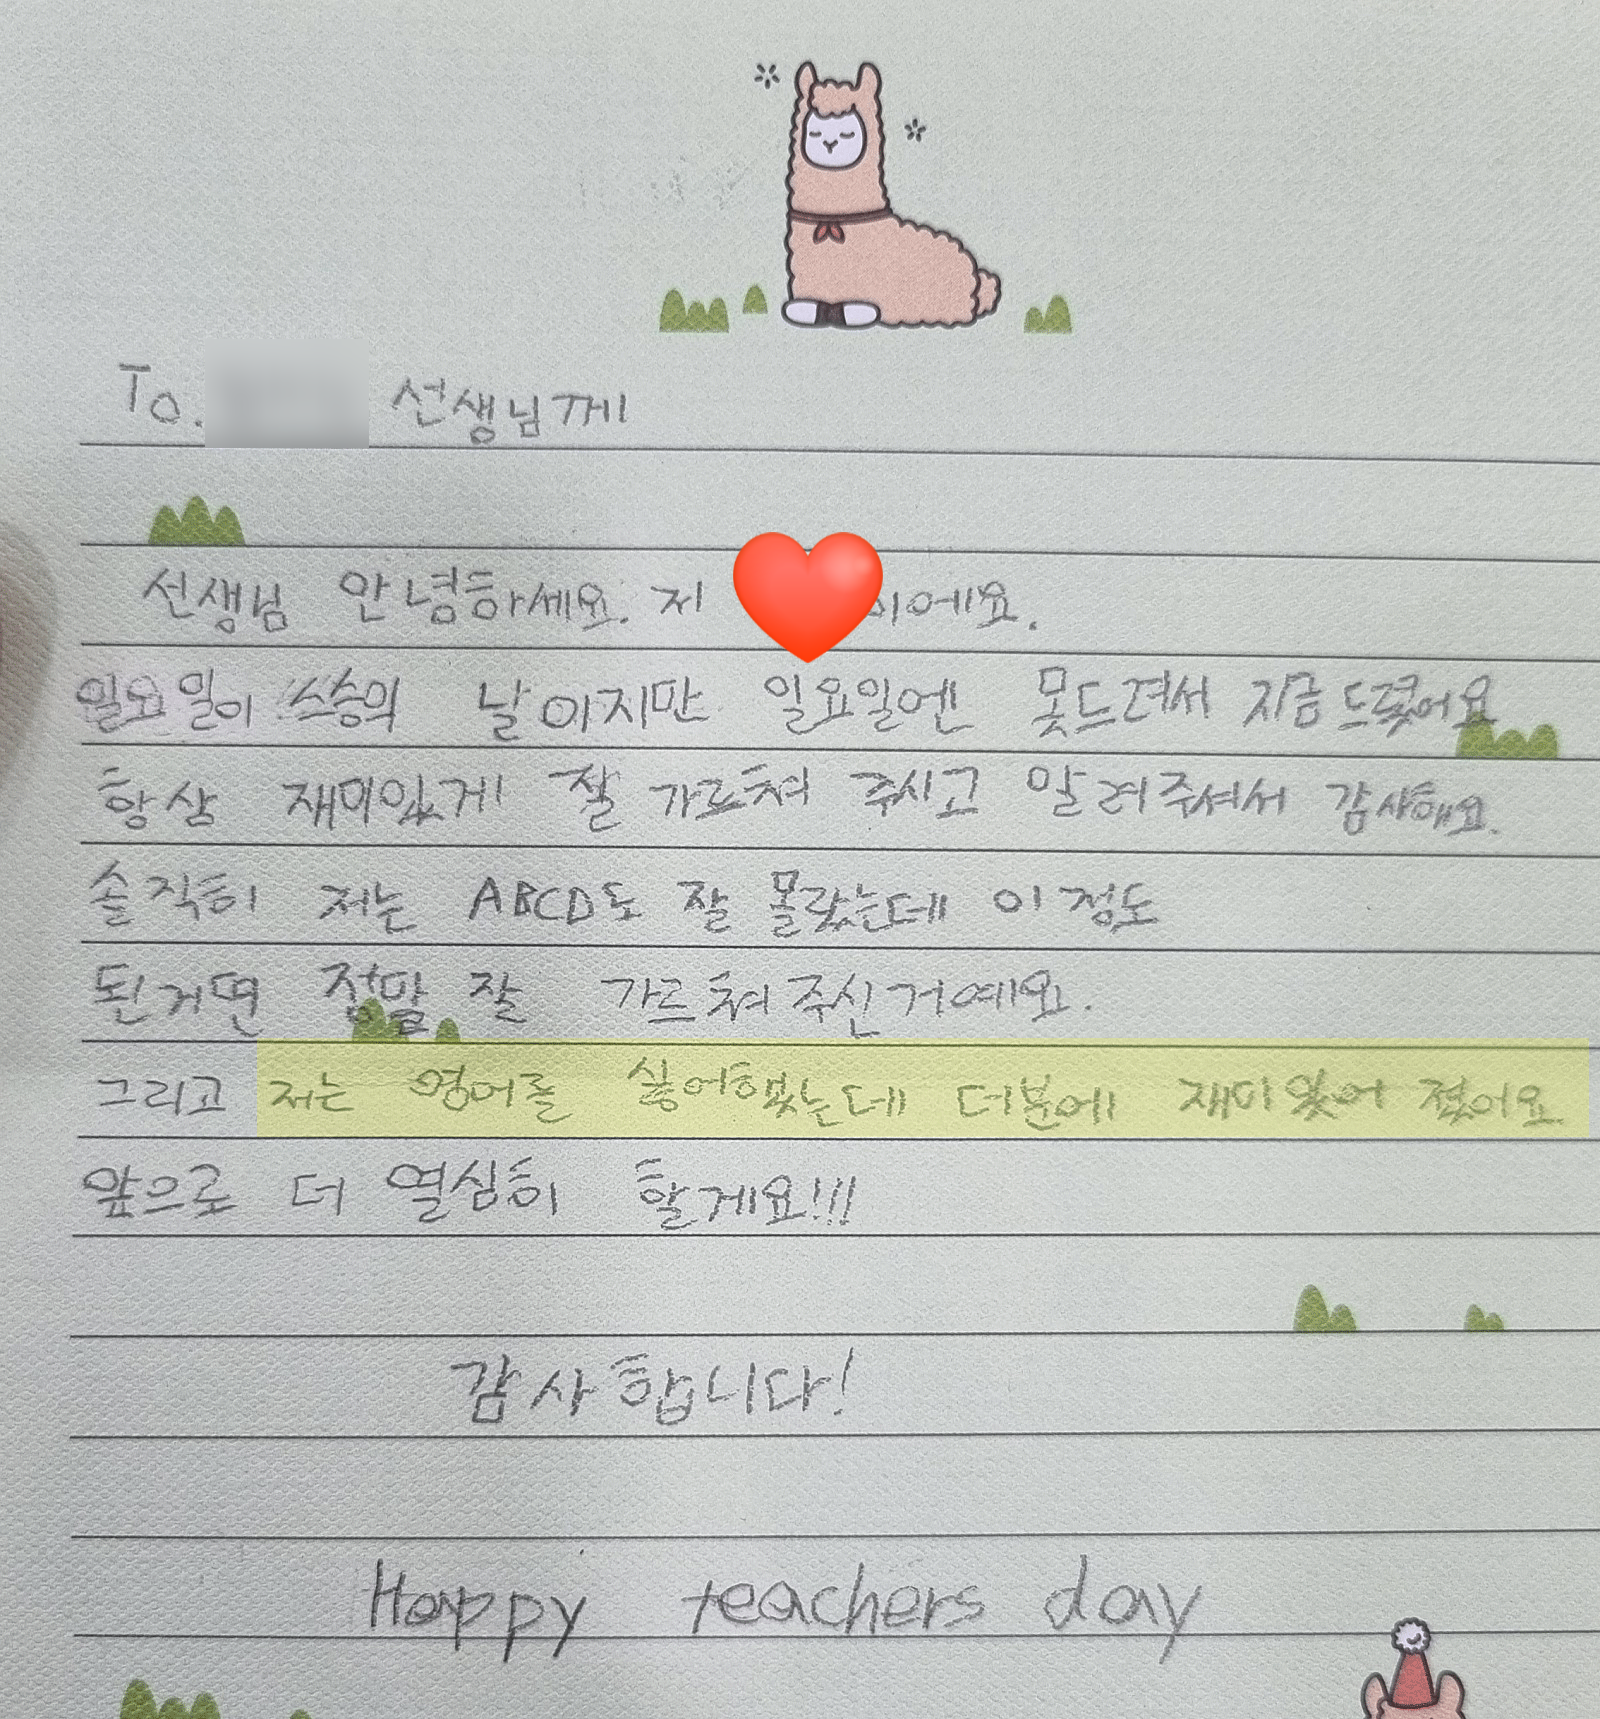 To. 선생님께
선생님 안녕하세요. 저 이에요.
일요일이 스승의 날이지만 일요일엔 못드려서 지금 드렸어요
항상 재미있게 잘 가르쳐 주시고 알려주셔서 감사해요.
솔직히 저는 ABCD도 잘 몰랐는데 이 정도
된거면 정말 잘 가르쳐 주신거예요.
그리고 저는 영어를 싫어했는데 더분에 재미있어 졌어요.
앞으로 더 열심히 할게요!!!
감사합니다!
Happy teachers day